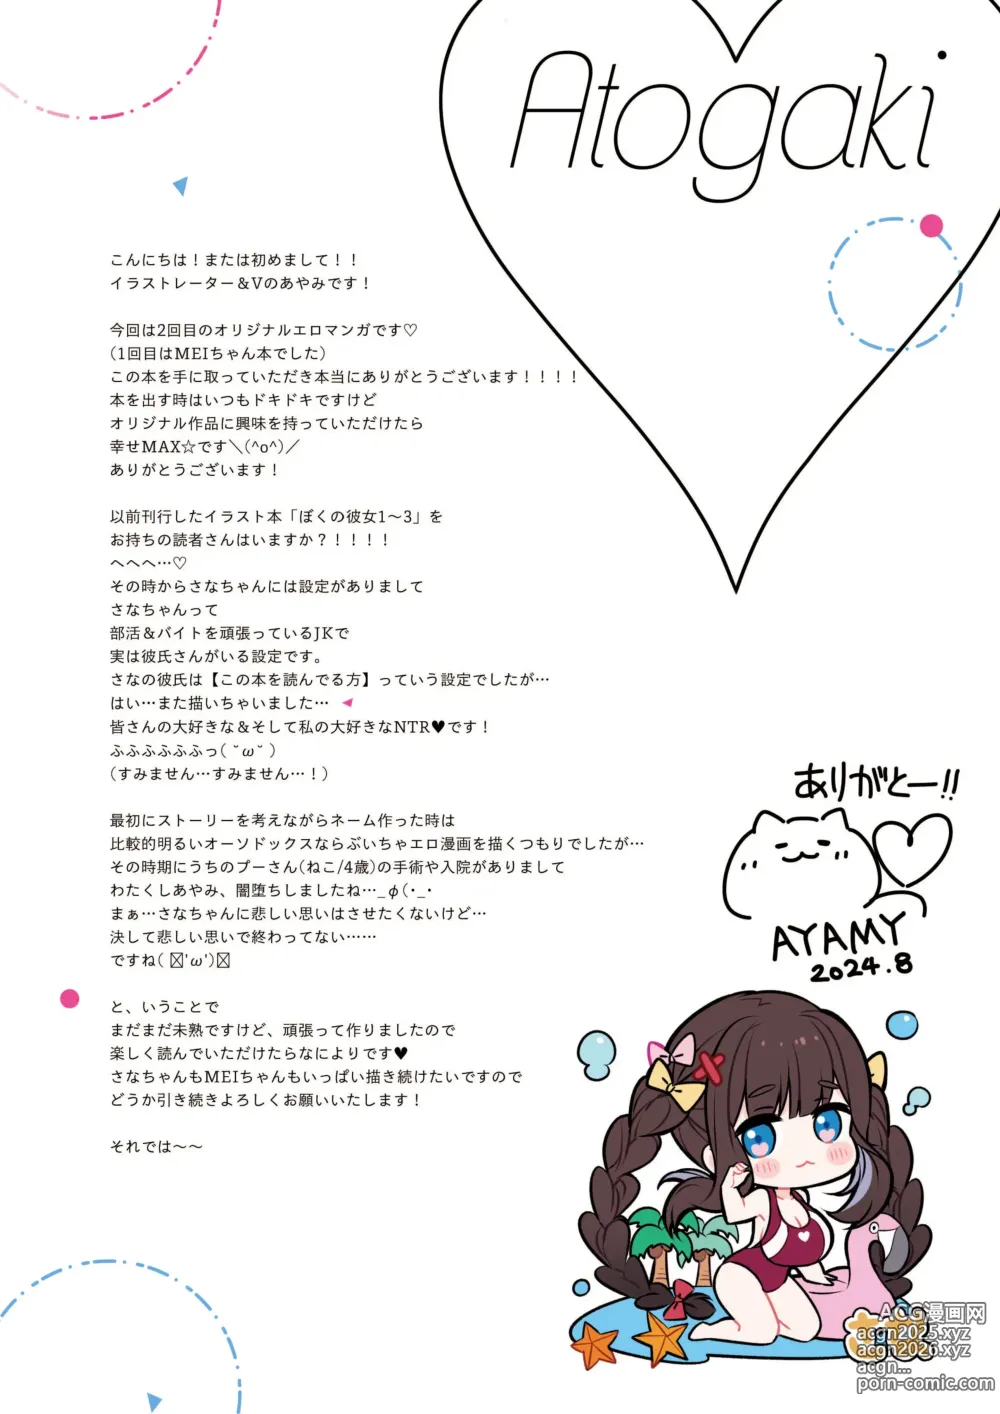 Atogaki
こんにちは！または初めまして！！
イラストレーター＆Vのあやみです！
今回は2回目のオリジナルエロマンガです♡
（1回目はMEIちゃん本でした）
この本を手に取っていただき本当にありがとうございます！！！！
本を出す時はいつもドキドキですけど
オリジナル作品に興味を持っていただけたら
幸せMAX☆です＼(^o^)／
ありがとうございます！
以前刊行したイラスト本「ぼくの彼女1～3」を
お持ちの読者さんはいますか？！！！！
へへへ…♡
その時からさなちゃんには設定がありまして
さなちゃんって
部活＆バイトを頑張っているJKで
実は彼氏さんがいる設定です。
さなの彼氏は【この本を読んでる方】っていう設定でしたが…
はい…また描いちゃいました…
皆さんの大好きな＆そして私の大好きなNTR♥です！
ふふふふふふっ( ˘ω˘ )
（すみません…すみません…！）
最初にストーリーを考えながらネーム作った時は
比較的明るいオーソドックスならぶいちゃエロ漫画を描くつもりでしたが…
その時期にうちのプーさん(ねこ/4歳)の手術や入院がありまして
わたくしあやみ、闇堕ちしましたね…_φ(･_･
まぁ…さなちゃんに悲しい思いはさせたくないけど…
決して悲しい思いで終わってない……
ですね( ☒'ω')☒
と、いうことで
まだまだ未熟ですけど、頑張って作りましたので
楽しく読んでいただけたらなによりです♥
さなちゃんもMEIちゃんもいっぱい描き続けたいですので
どうか引き続きよろしくお願いいたします！
それでは～～
ありがとー!!
AYAMY
2024.8
ACG漫画网
acgn2025.xyz
acgn2026.xyz
acgn...
porn-comic.com